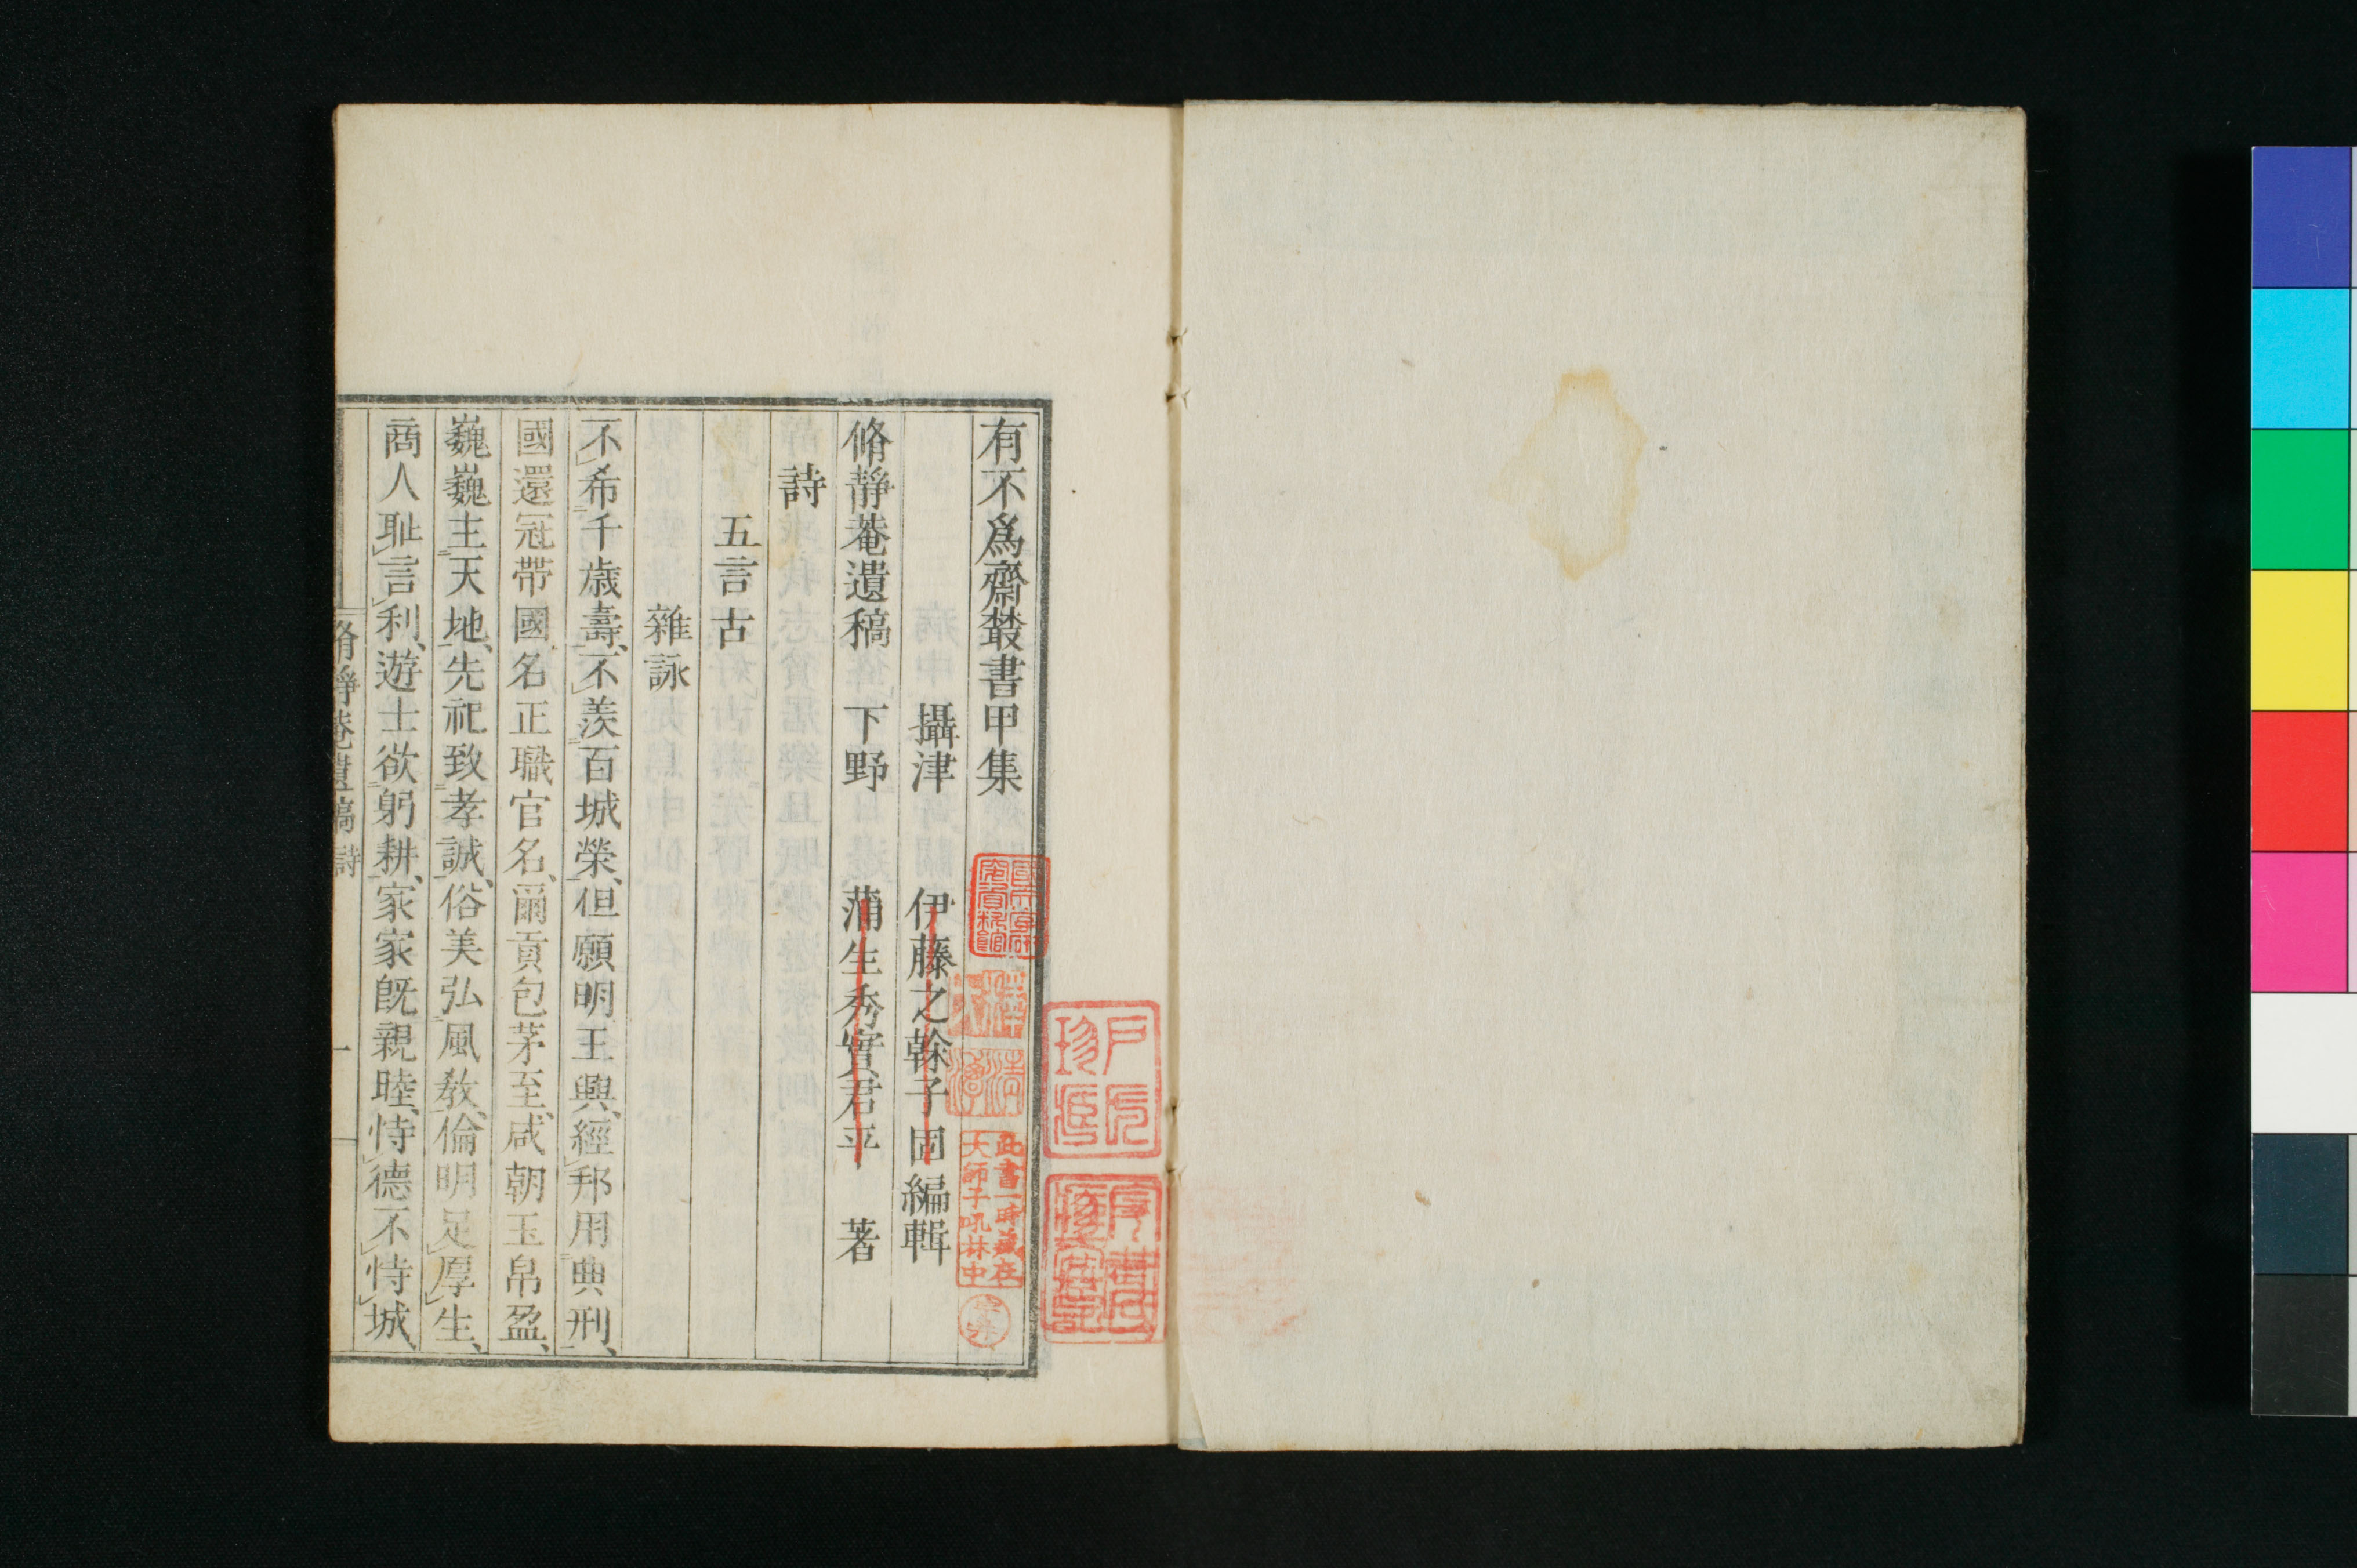 有不爲齋叢書甲集
攝津 伊藤之榦子固編輯
脩靜菴遺稿 下野 蒲生秀實君平 著
詩
五言古
雜詠
不希千歲壽、不羨百城榮、但願明王興、經邦用典刑、
國還冠帶國、名正職官名、爾貢包茅至、咸朝玉帛盈、
巍巍主天地、先祀致孝誠、俗美弘風教、倫明足厚生、
商人耻言利、遊士欲躬耕、家家既親睦、恃德不恃城、
脩靜菴遺稿 詩 一
此書一時藏在
大師子吼林中